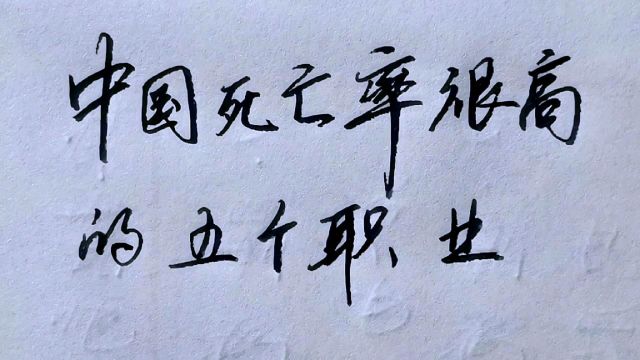 中国死亡率很高
的五个职业